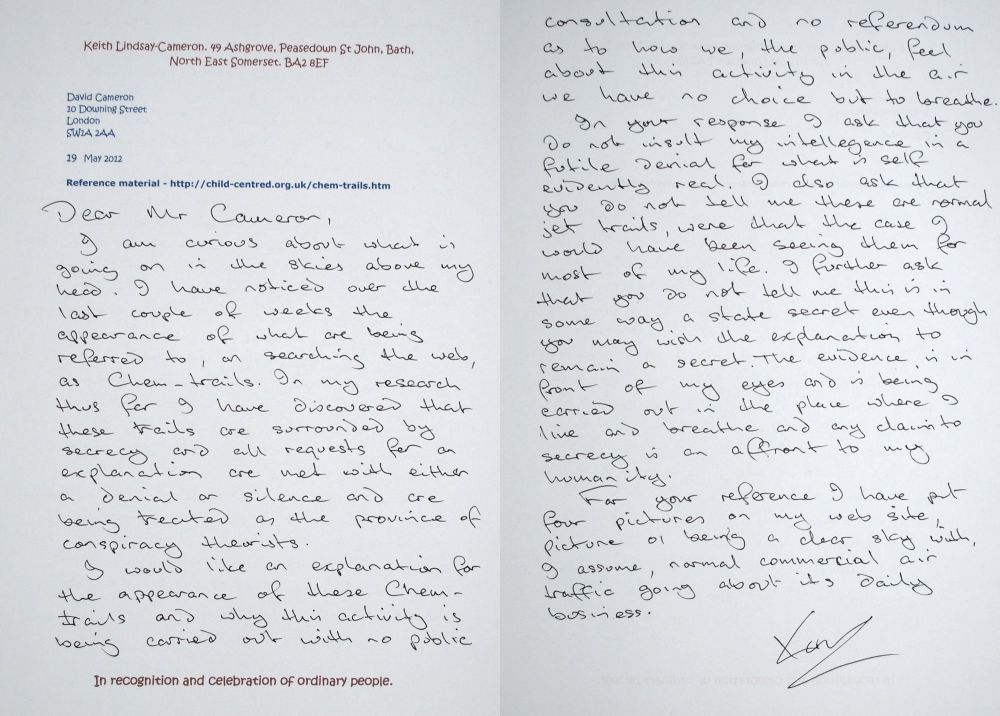 Keith Lindsay-Cameron. 49 Ashgrove, Peasedown St John, Bath,
North East Somerset. BA2 8EF
David Cameron
10 Downing Street
London
SW1A 2AA
19 May 2012
Reference material - http://child-centred.org.uk/chem-trails.htm
Dear Mr Cameron,
I am curious about what is
going on in the skies above my
head. I have noticed over the
last couple of weeks the
appearance of what are being
referred to, on searching the web,
as Chem-trails. In my research
thus far I have discovered that
these trails are surrounded by
secrecy and all requests for an
explanation are met with either
a denial or silence and are
being treated as the province of
conspiracy theorists.
I would like an explanation for
the appearance of these Chem-
trails and why this activity is
being carried out with no public
In recognition and celebration of ordinary people.
consultation and no referendum
as to how we, the public, feel
about this activity in the air
we have no choice but to breathe.
In your response I ask that you
do not insult my intellegence in a
futile denial for what is self
evidently real. I also ask that
you do not tell me these are normal
jet trails, were that the case I
would have been seeing them for
most of my life. I further ask
that you do not tell me this is in
some way a state secret even though
you may wish the explanation to
remain a secret. The evidence is in
front of my eyes and is being
carried out in the place where I
live and breathe and any claim to
secrecy is an affront to my
humanity.
For your reference I have put
four pictures on my web site,
picture 01 being a clear sky with,
I assume, normal commercial air
traffic going about its daily
business.